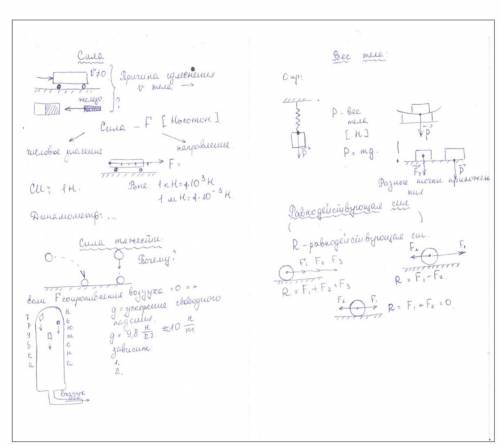 Сила
v≠0
Причина изменения
v тела →
железо
?
Сила - F [Ньютон]
числовое значение
направление
F =
СИ: 1Н.
Вне: 1 кН = 1·10³Н
1 мН = 1·10⁻³Н
Динамометр: ...
Сила тяжести.
Почему?
если Fсопротивления воздуха = 0 =>
g = ускорение свободного
падения
g = 9,8 Н/кг ≈ 10
зависит
1.
2.
Трубка
Ньютона
воздух
Вес тела:
Опр:
P - вес
тела
[Н]
P = mg.
P
P
Fт
P
!
Разные точки приложе
ния
Равнодействующая сил
( )
R - равнодействующая сил.
F₁ F₂ F₃
R = F₁ + F₂ + F₃
F₂ F₁
R = F₁ - F₂.
F₂ F₁
R = F₁ - F₂ = 0